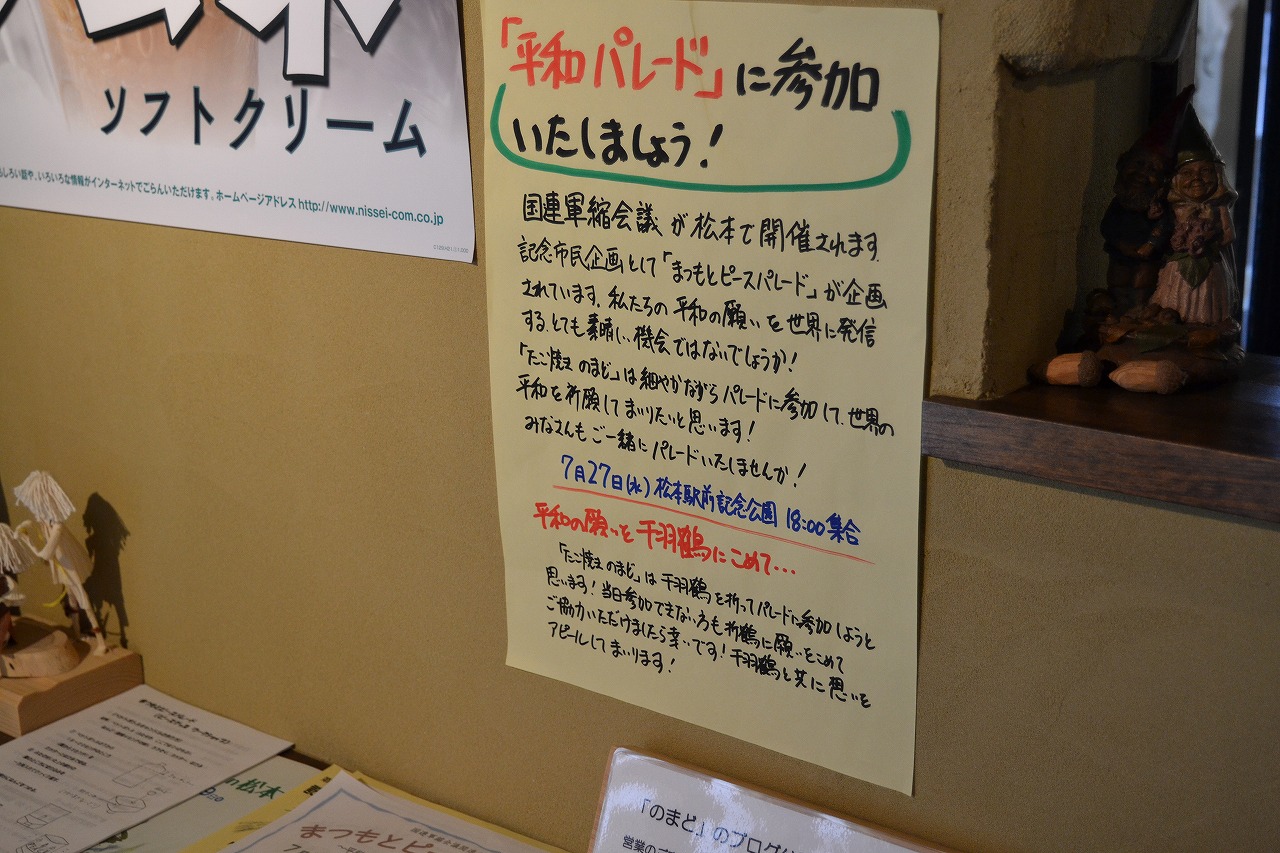 ソフトクリーム
しろい話や、いろいろな情報がインターネットでごらんいただけます。ホームページアドレスhttp://www.nissei-com.co.jp
「平和パレード」に参加
いたしましょう!
国連軍縮会議が松本で開催されます。
記念市民企画として「まつもとピースパレード」が企画
されています。私たちの平和の願いを世界に発信
する、とても素晴しい機会ではないでしょうか!
「たこ焼き のまど」は細やかながらパレードに参加して、世界の
平和を祈願してまいりたいと思います!
みなさんもご一緒にパレードいたしませんか!
7月27日(水)松本駅前記念公園 18:00集合
平和の願いを千羽鶴にこめて...
「たこ焼き のまど」は千羽鶴を折ってパレードに参加しようと
思います!当日参加できない方も折鶴に願いをこめて
ご協力いただけましたら幸いです!千羽鶴と共に想いを
アピールしてまいります!
松本
まつもとピ
「のまど」のブログ
営業の